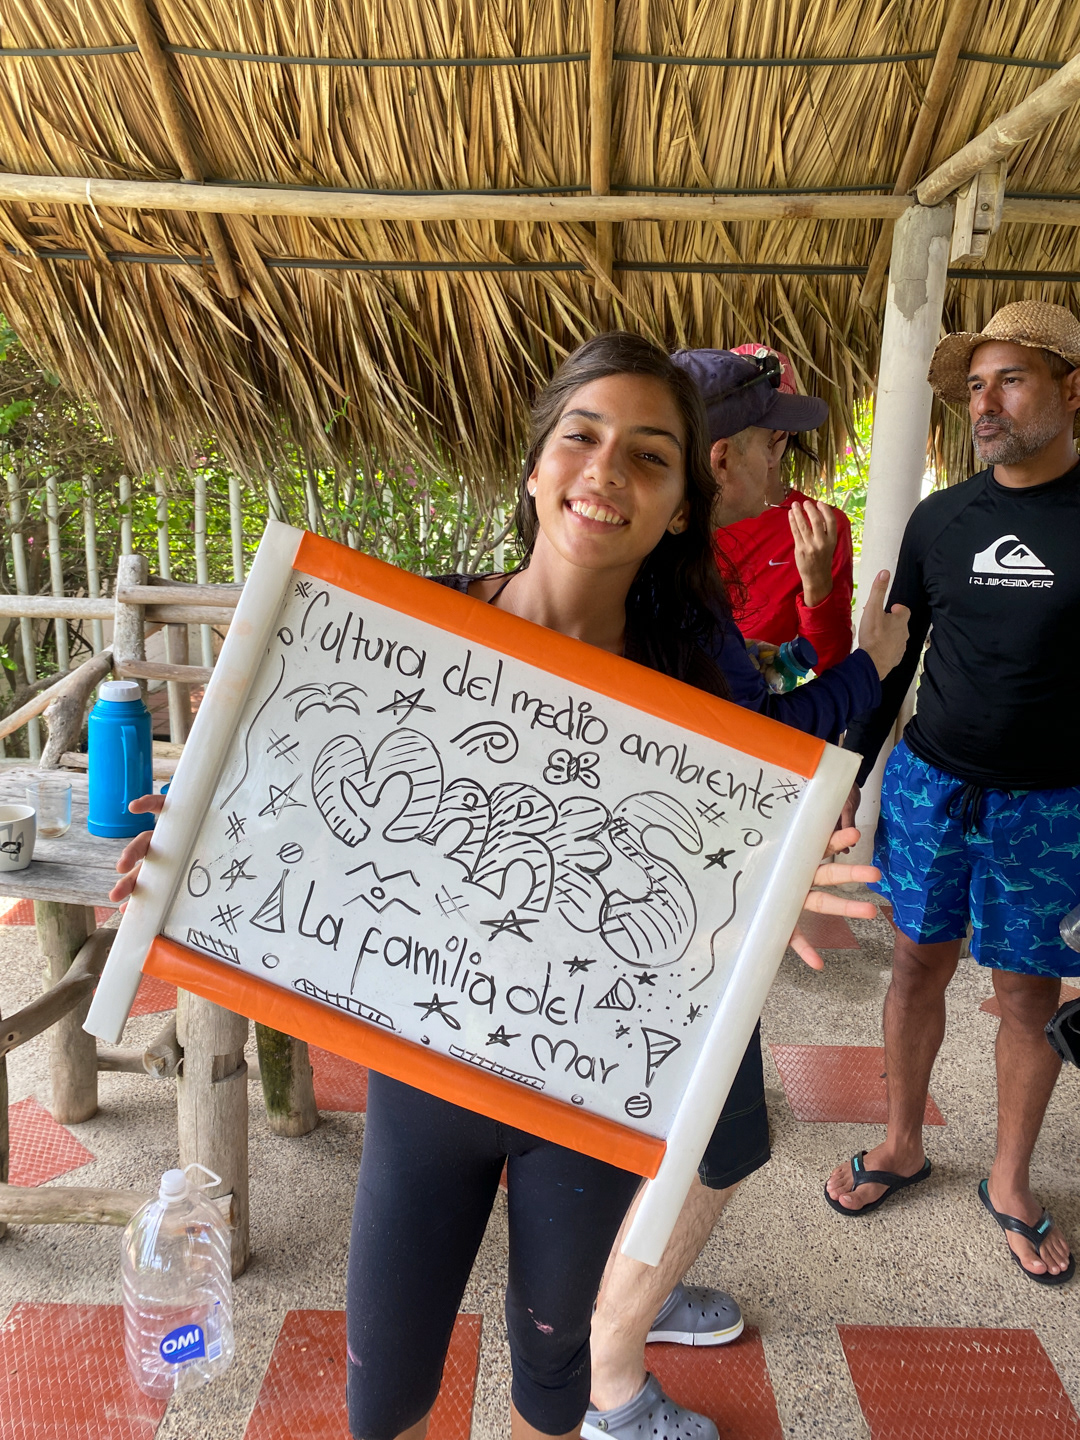 Cultura del medio ambiente
La familia del
mar
QUIKSILVER
OMI